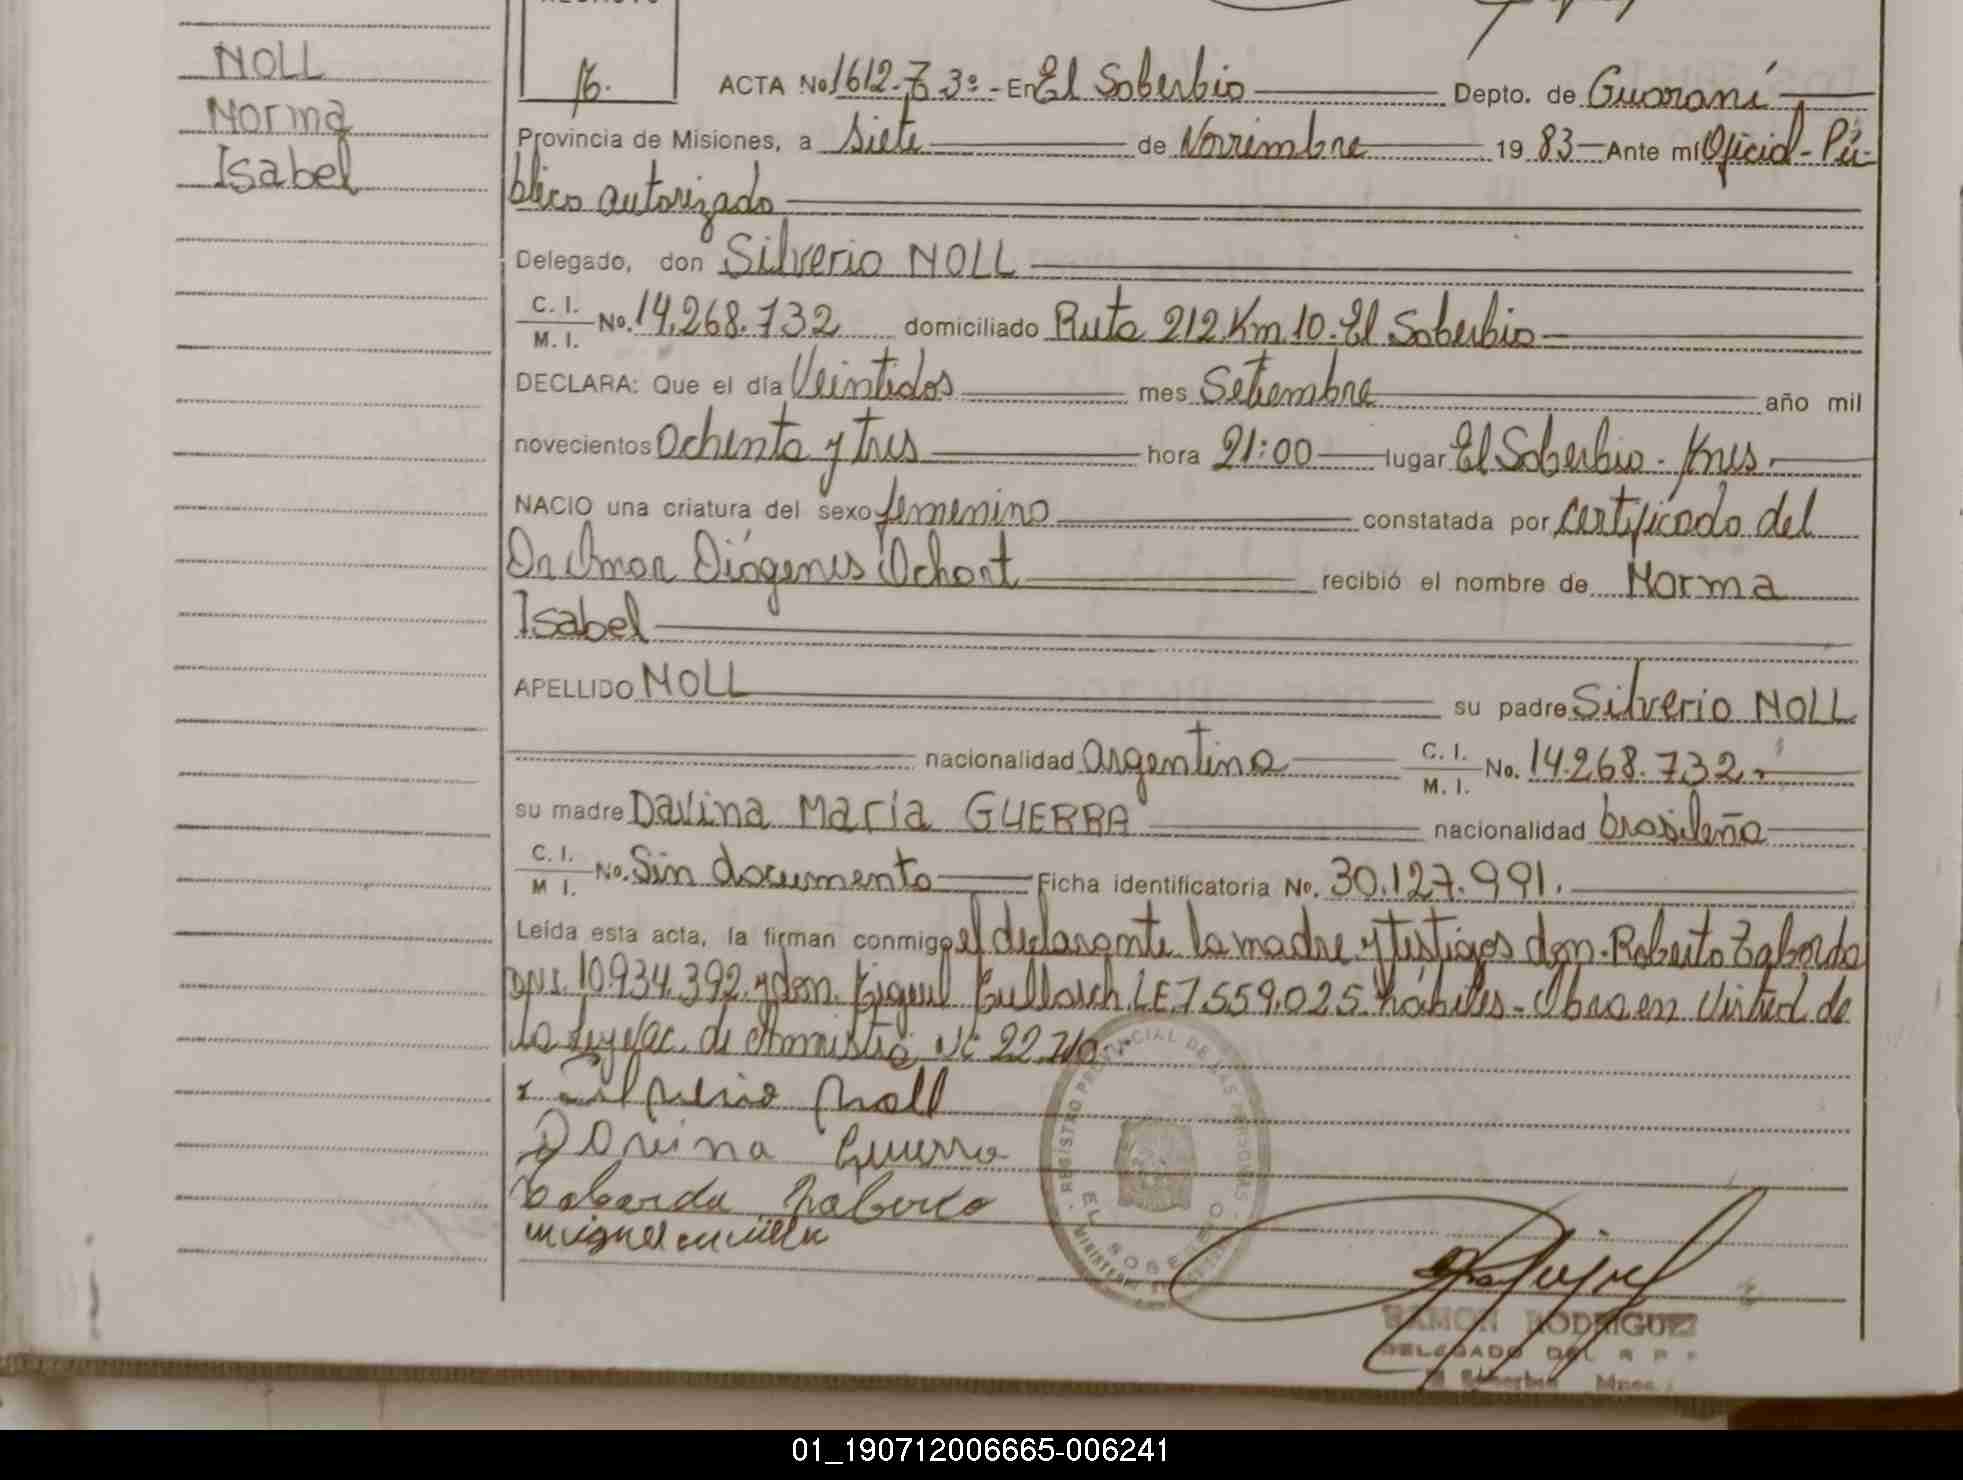 NOLL
Norma
Isabel
16.
ACTA No 1612. T 3º - En El Soberbio Depto. de Guaraní
Provincia de Misiones, a siete de Noviembre 19 83 Ante mí Oficial - Pú-
blico autorizado
Delegado, don Silverio NOLL
C. I.
M. I. No. 14.268.732 domiciliado Ruta 212. Km. 10. El Soberbio
DECLARA: Que el día Veintidos mes Setiembre año mil
novecientos Ochenta y tres hora 21:00 lugar El Soberbio - Mnes.
NACIO una criatura del sexo femenino constatada por certificado del
Dr Omar Diógenes Ochart recibió el nombre de Norma
Isabel
APELLIDO NOLL su padre Silverio NOLL
nacionalidad argentina C. I.
M. I. No. 14.268.732.
su madre Davina María GUERRA nacionalidad brasileña
C. I.
M I. No. Sin documento Ficha identificatoria No. 30.127.991.
Leída esta acta, la firman conmigo el declarante la madre y testigos don. Roberto
DNI. 10.934.392. y don. LE 7559.025. hábiles - Obra en Virtud de
la Ley Nac. de Amnistia Nº 22.
Silverio Noll
Davina Guerra
Roberto
Miguel
REGISTRO PROVINCIAL DE LAS PERSONAS
EL SOBERBIO
RAMON RODRIGUEZ
DELEGADO DEL R P P
El Soberbio Mnes.
01_190712006665-006241